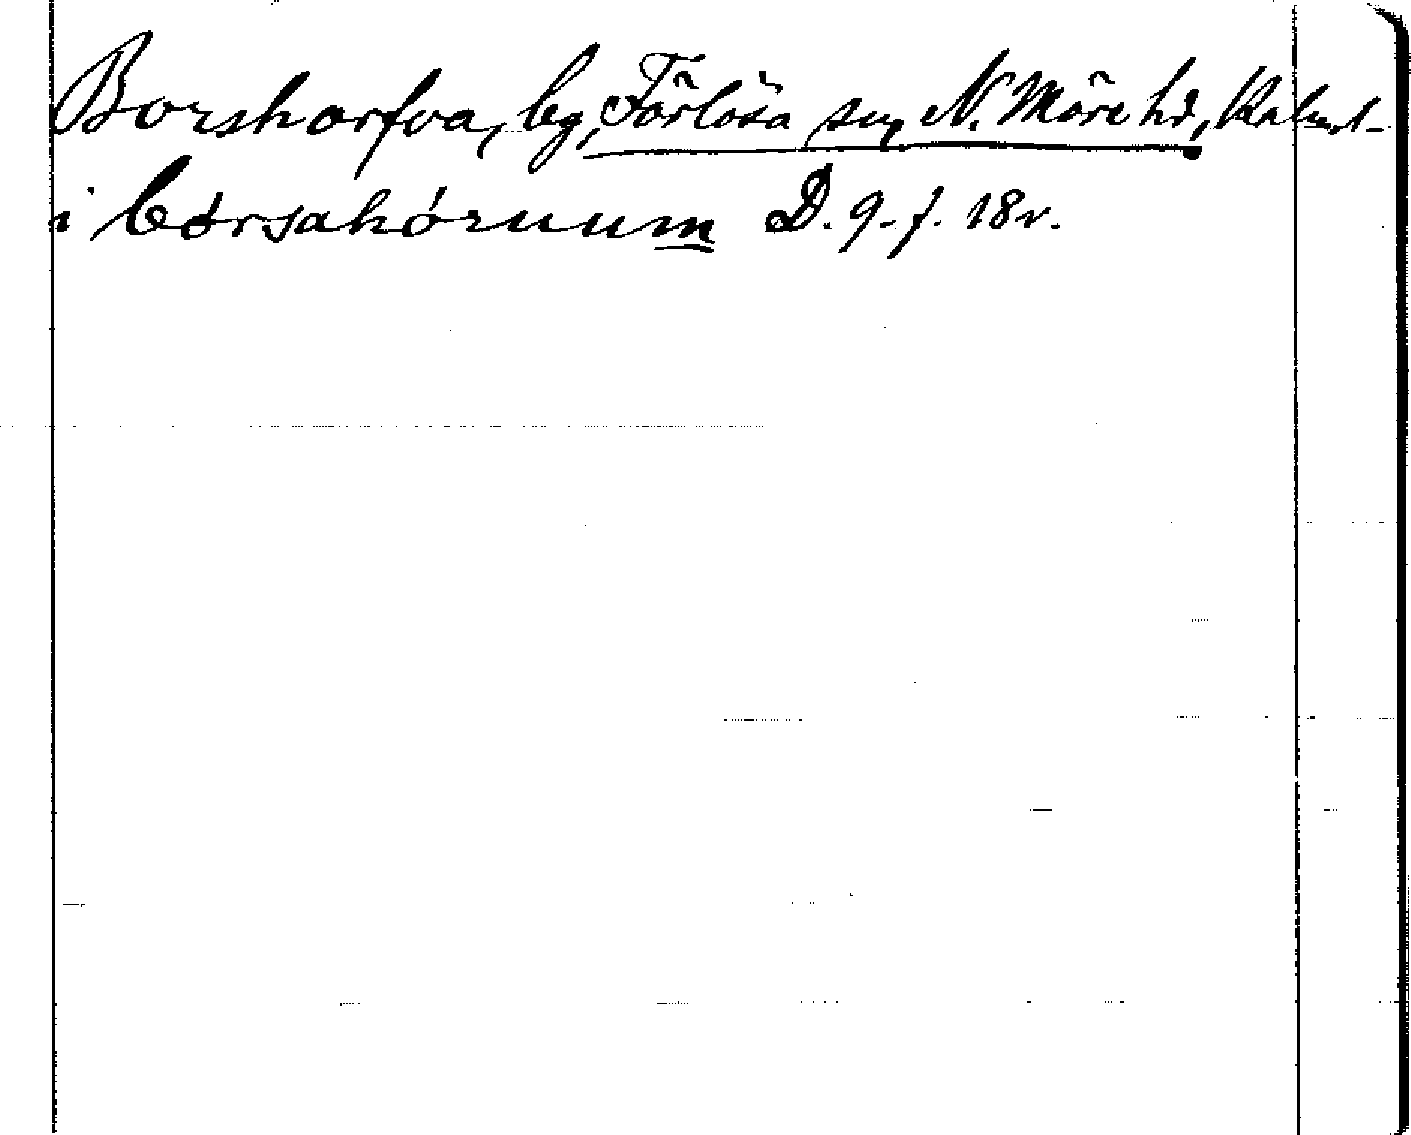 Borshorfva, by, Förlösa sn, N. Möre hd, Kalm. l.
i bórsahóruum D. 9. f. 18v.